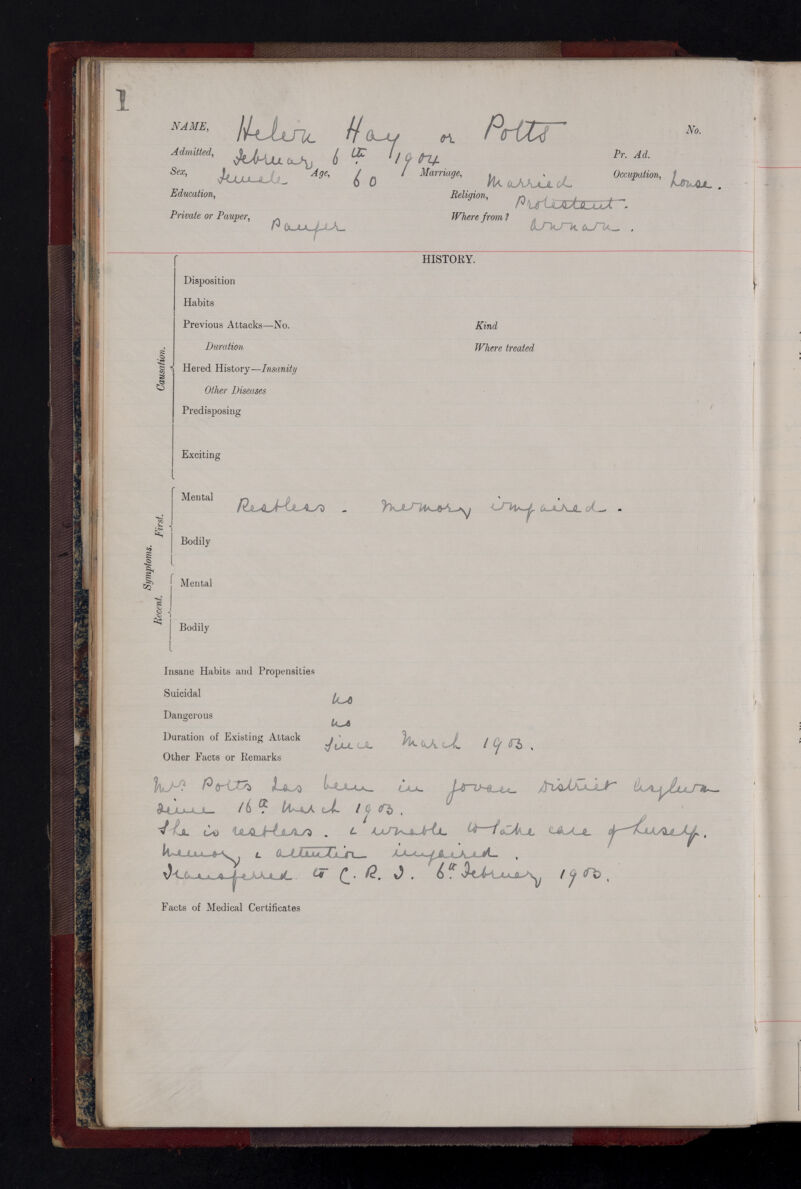 1
NAME, Helen Hay or Potts No.
Admitted, February 6th 1904 Pr. Ad.
Sex, Female Age, 60 Marriage, Married Occupation, house.
Education, Religion, Protestant.
Private or Pauper, Pauper Where from?
HISTORY.
Causation.
Disposition
Habits
Previous Attacks—No. Kind
Duration Where treated
Hered History—Insanity
Other Diseases
Predisposing
Exciting
Symptoms.
First.
Mental Restless - memory impaired.
Bodily
Recent.
Mental
Bodily
Insane Habits and Propensities
Suicidal no
Dangerous no
Duration of Existing Attack Since March 1903.
Other Facts or Remarks
Mrs Potts has been in Govan District Asylum
since 16th March 1903.
She is restless. & unable to take care of herself.
Memory & attention impaired.
Transferred to C. R. I. 6th February 1903.
Facts of Medical Certificates